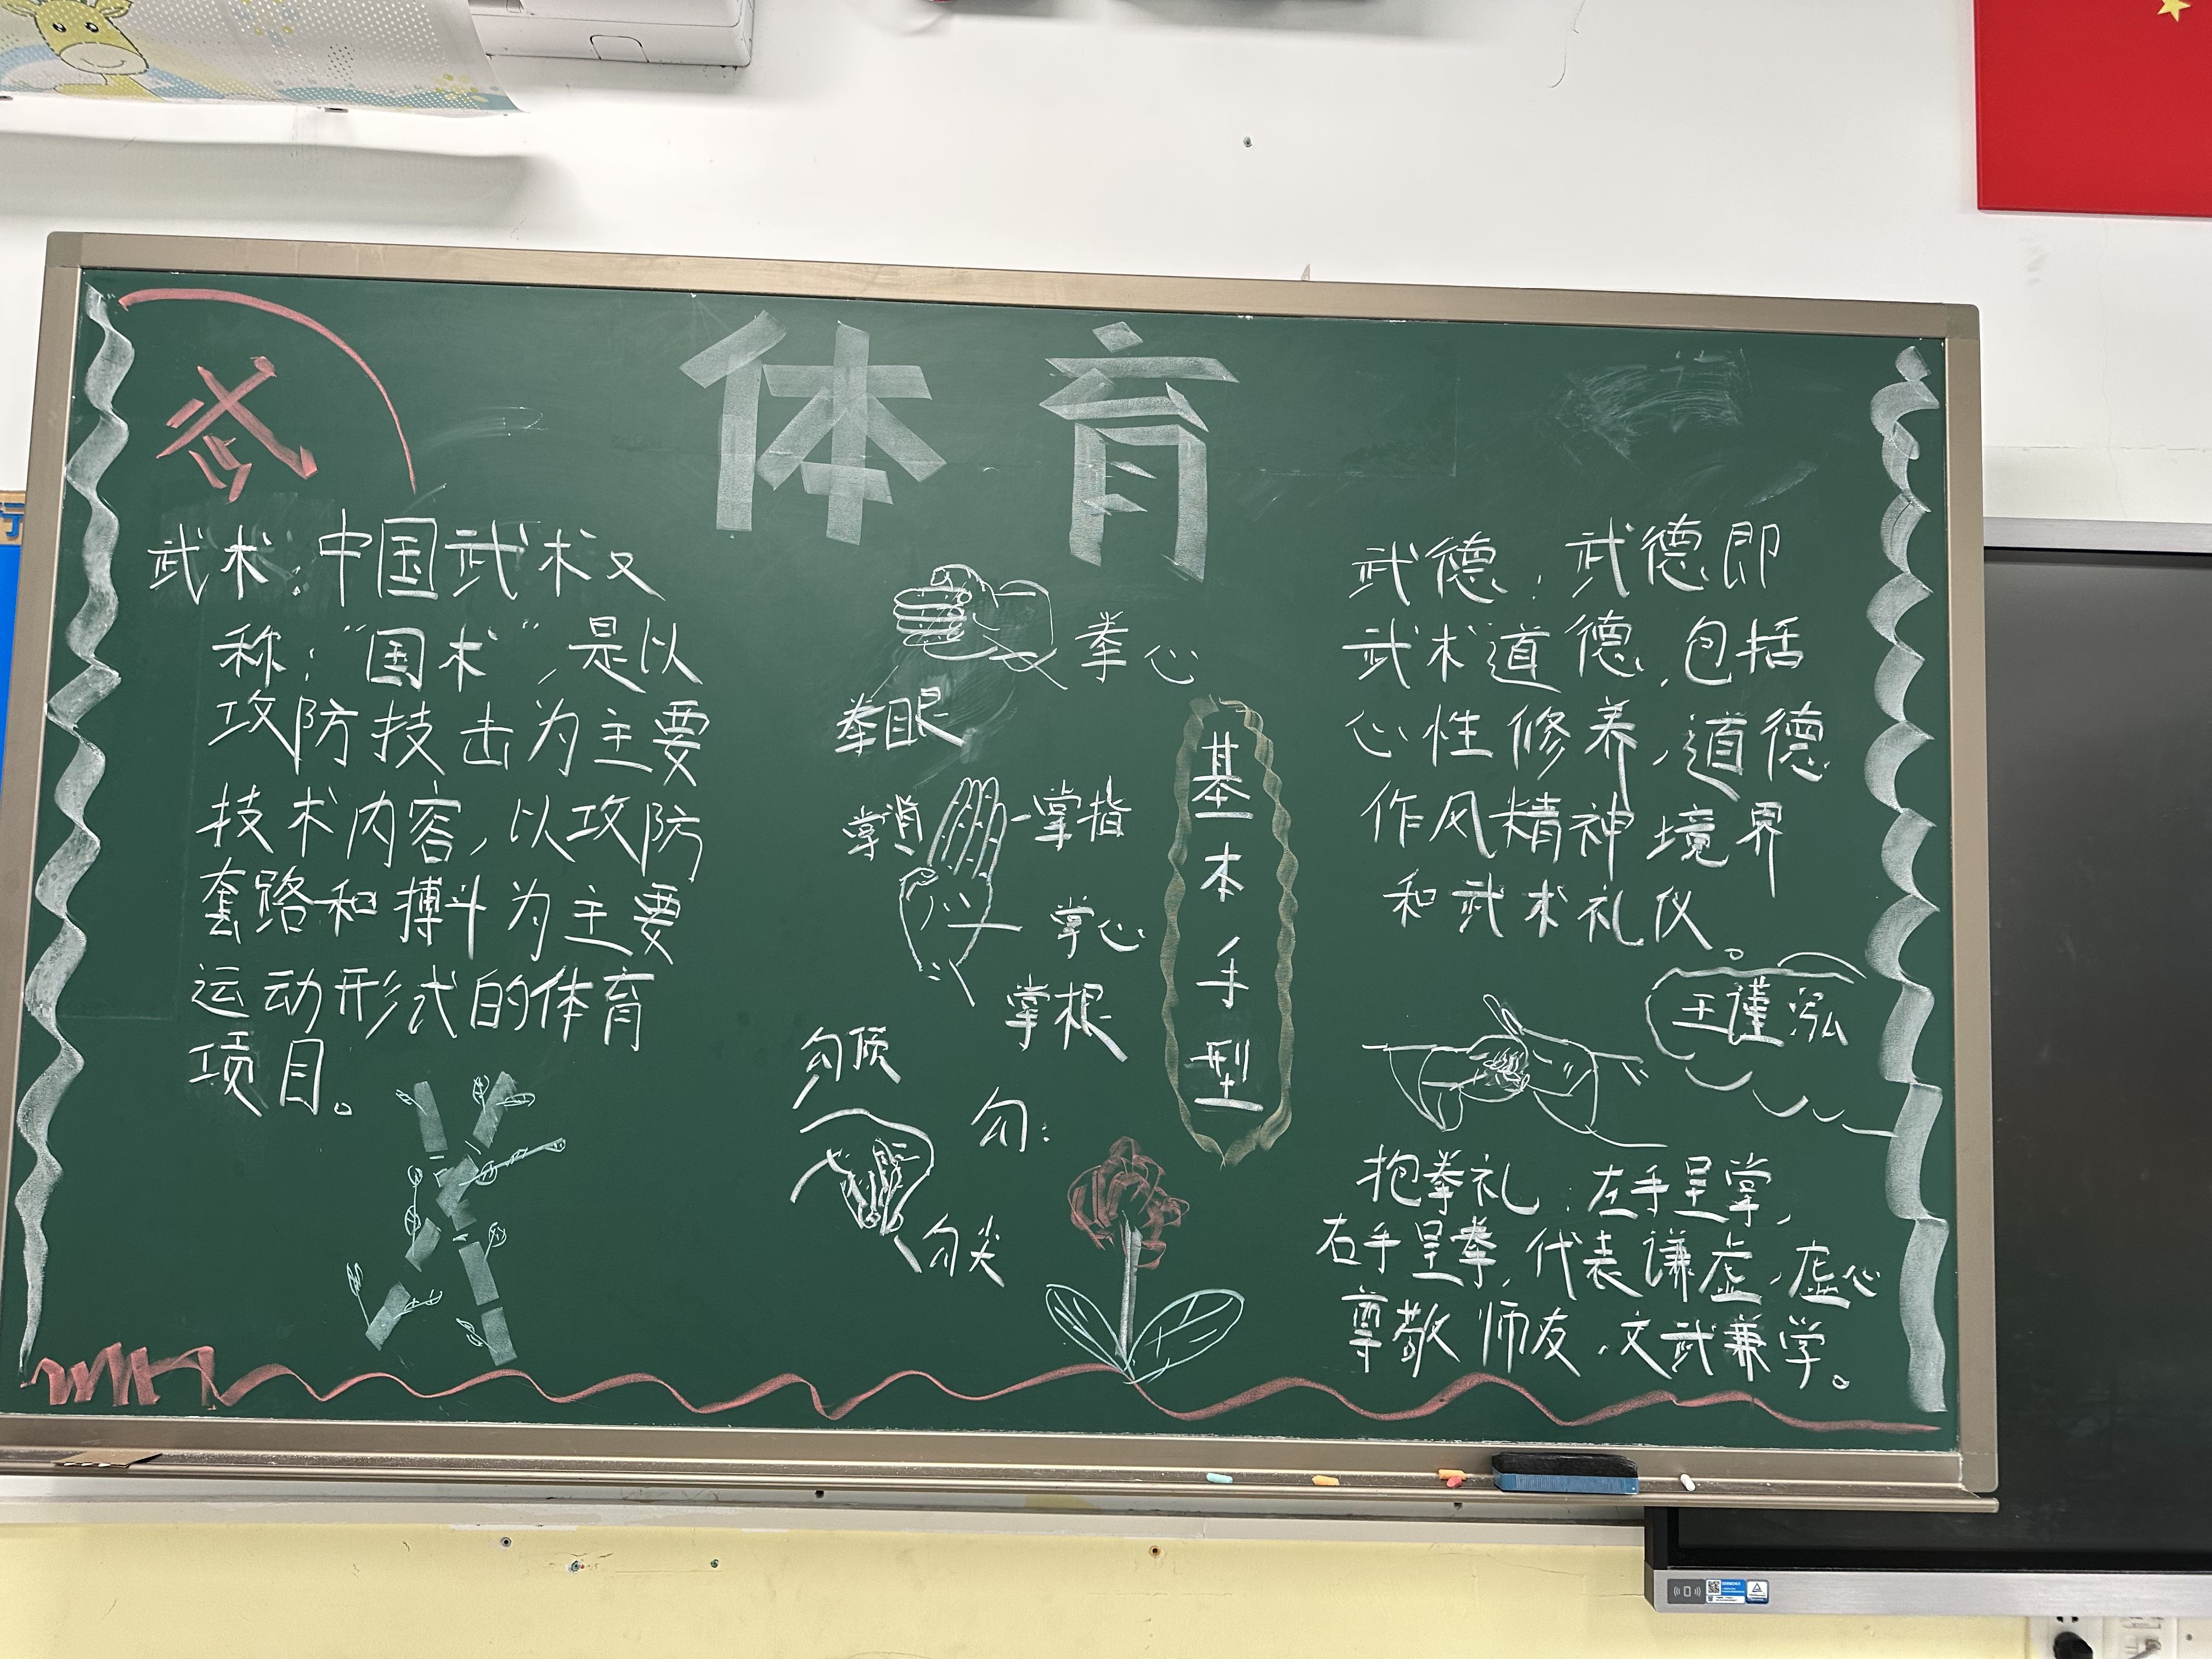 体育
武
武术：中国武术又
称："国术"，是以
攻防技击为主要
技术内容，以攻防
套路和搏斗为主要
运动形式的体育
项目。
拳心
拳眼
掌指
掌心
掌根
勾顶
勾：
勾尖
基本手型
武德：武德即
武术道德，包括
心性修养，道德
作风精神境界
和武术礼仪。
王谨泓
抱拳礼：左手呈掌，
右手呈拳，代表谦虚，虚心
尊敬师友，文武兼学。